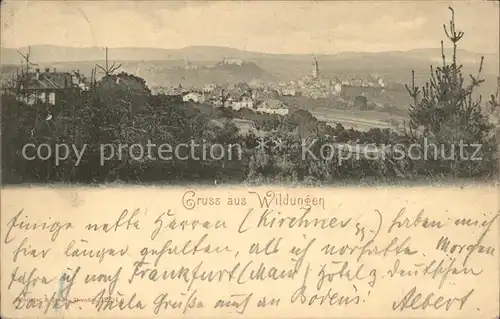 copyright by ansichtskartenversand
Gruss aus Wildungen
Einige nette Herren (Kirchner) haben mich
hier länger gehalten, als ich vorhatte. Morgen
fahre ich nach Frankfurt (Main) Hotel z. deutschen
Kaiser. Viele Grüße auch an
Albert